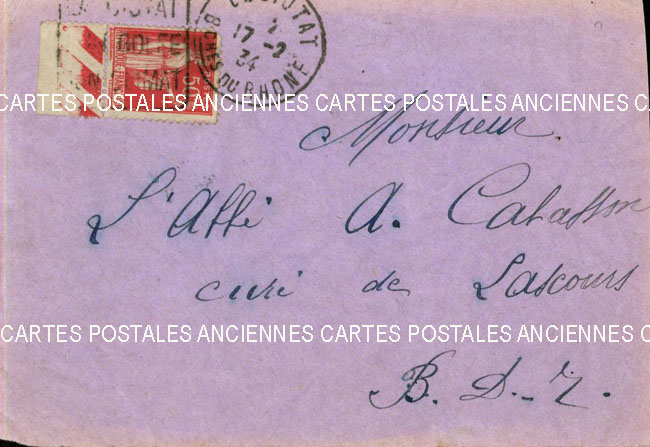 LA CIOTAT
LA CIOTAT
17 -2
34
BCHES DU RHONE
CARTES POSTALES ANCIENNES CARTES POSTALES ANCIENNES CA
Monsieur
L'Abbé A. Cabasson
curé de Lascours
CARTES POSTALES ANCIENNES CARTES POSTALES ANCIENNES C
B. D.-R.